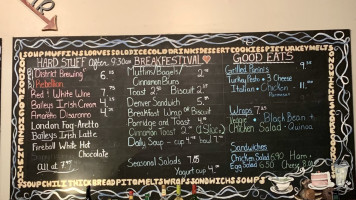 SOUP MUFFINS LOAVES SOLD ICE COLD DRINKS DESSERT COOKIES PIE TURKEY MELTS
HARD STUFF After 9:30am
District Brewing 6.
Rebellion
Red + White Wine 7.75
Baileys Irish Cream
Amaretto Disaronno
London Fog Aretto
Baileys Irish Latte
Fireball White Hot
Chocolate
all at 7.
BREAKFESTIVAL
Muffins/Bagels/
Cinnamon Buns
Toast 2.50 Biscuit 2.
Denver Sandwich 5.
Breakfast Wrap or Biscuit
Porridge and Toast
Cinnamon Toast 2. (1 Slice)
Daily Soup - cup 4. bowl 7.
Seasonal Salads 7.
Yogurt cup 4.
GOOD EATS
Grilled Panini's 9.
Turkey/Ham + 3 Cheese
Italian + Chicken
Parmesan
Wraps 7.
Veggie Black Bean +
Chicken Salad - Quinoa
Sandwiches
Chicken Salad 6.90 Ham +
Egg Salad 6.50 Cheese
SOUP CHILI THICK BREAD PITO MELTS WRAPS SANDWICHS SOUPS